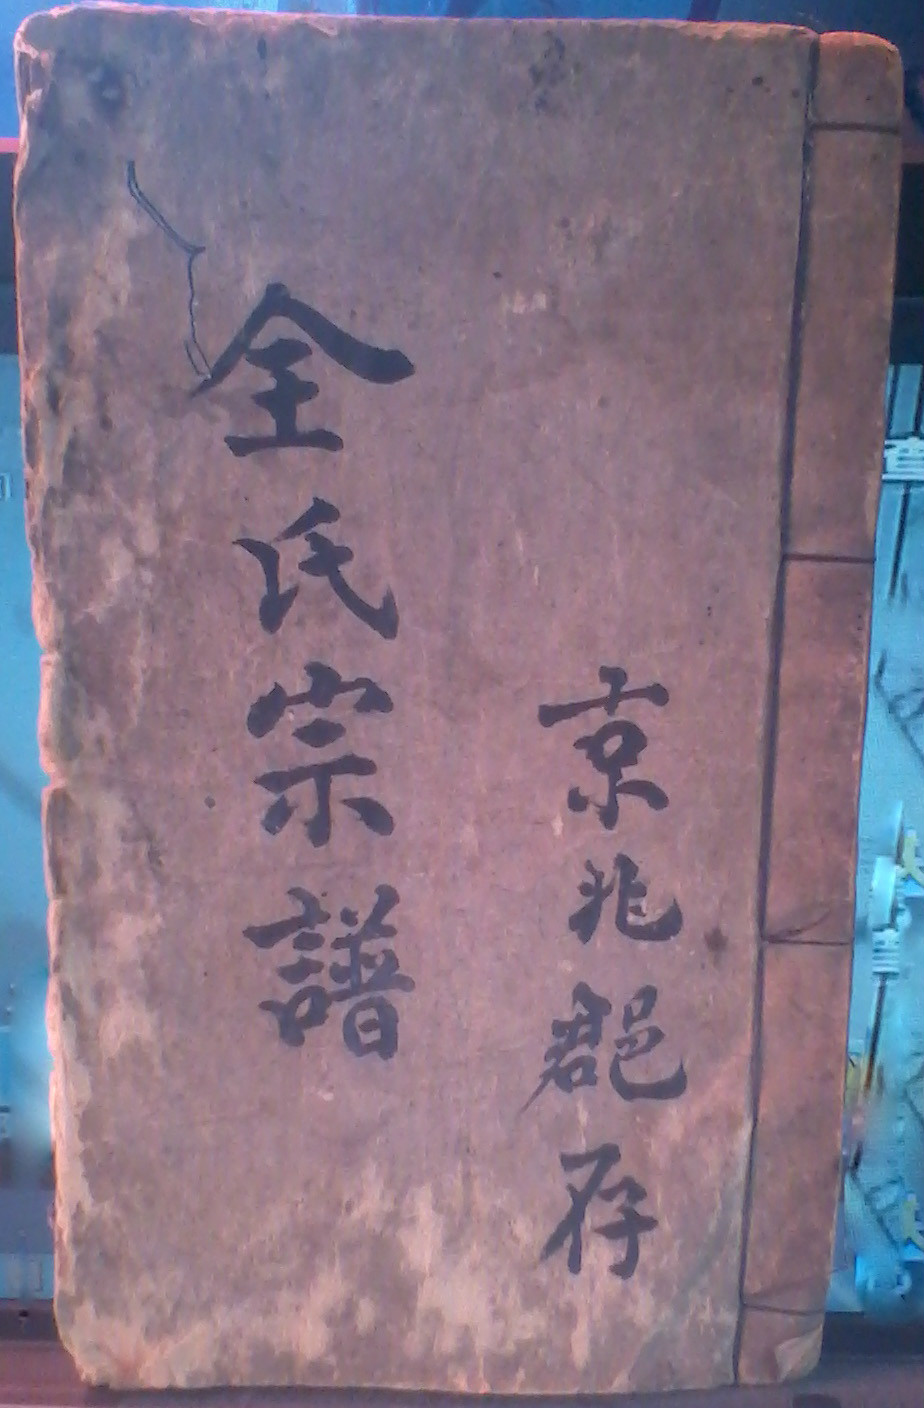 京兆郡存
全氏宗譜